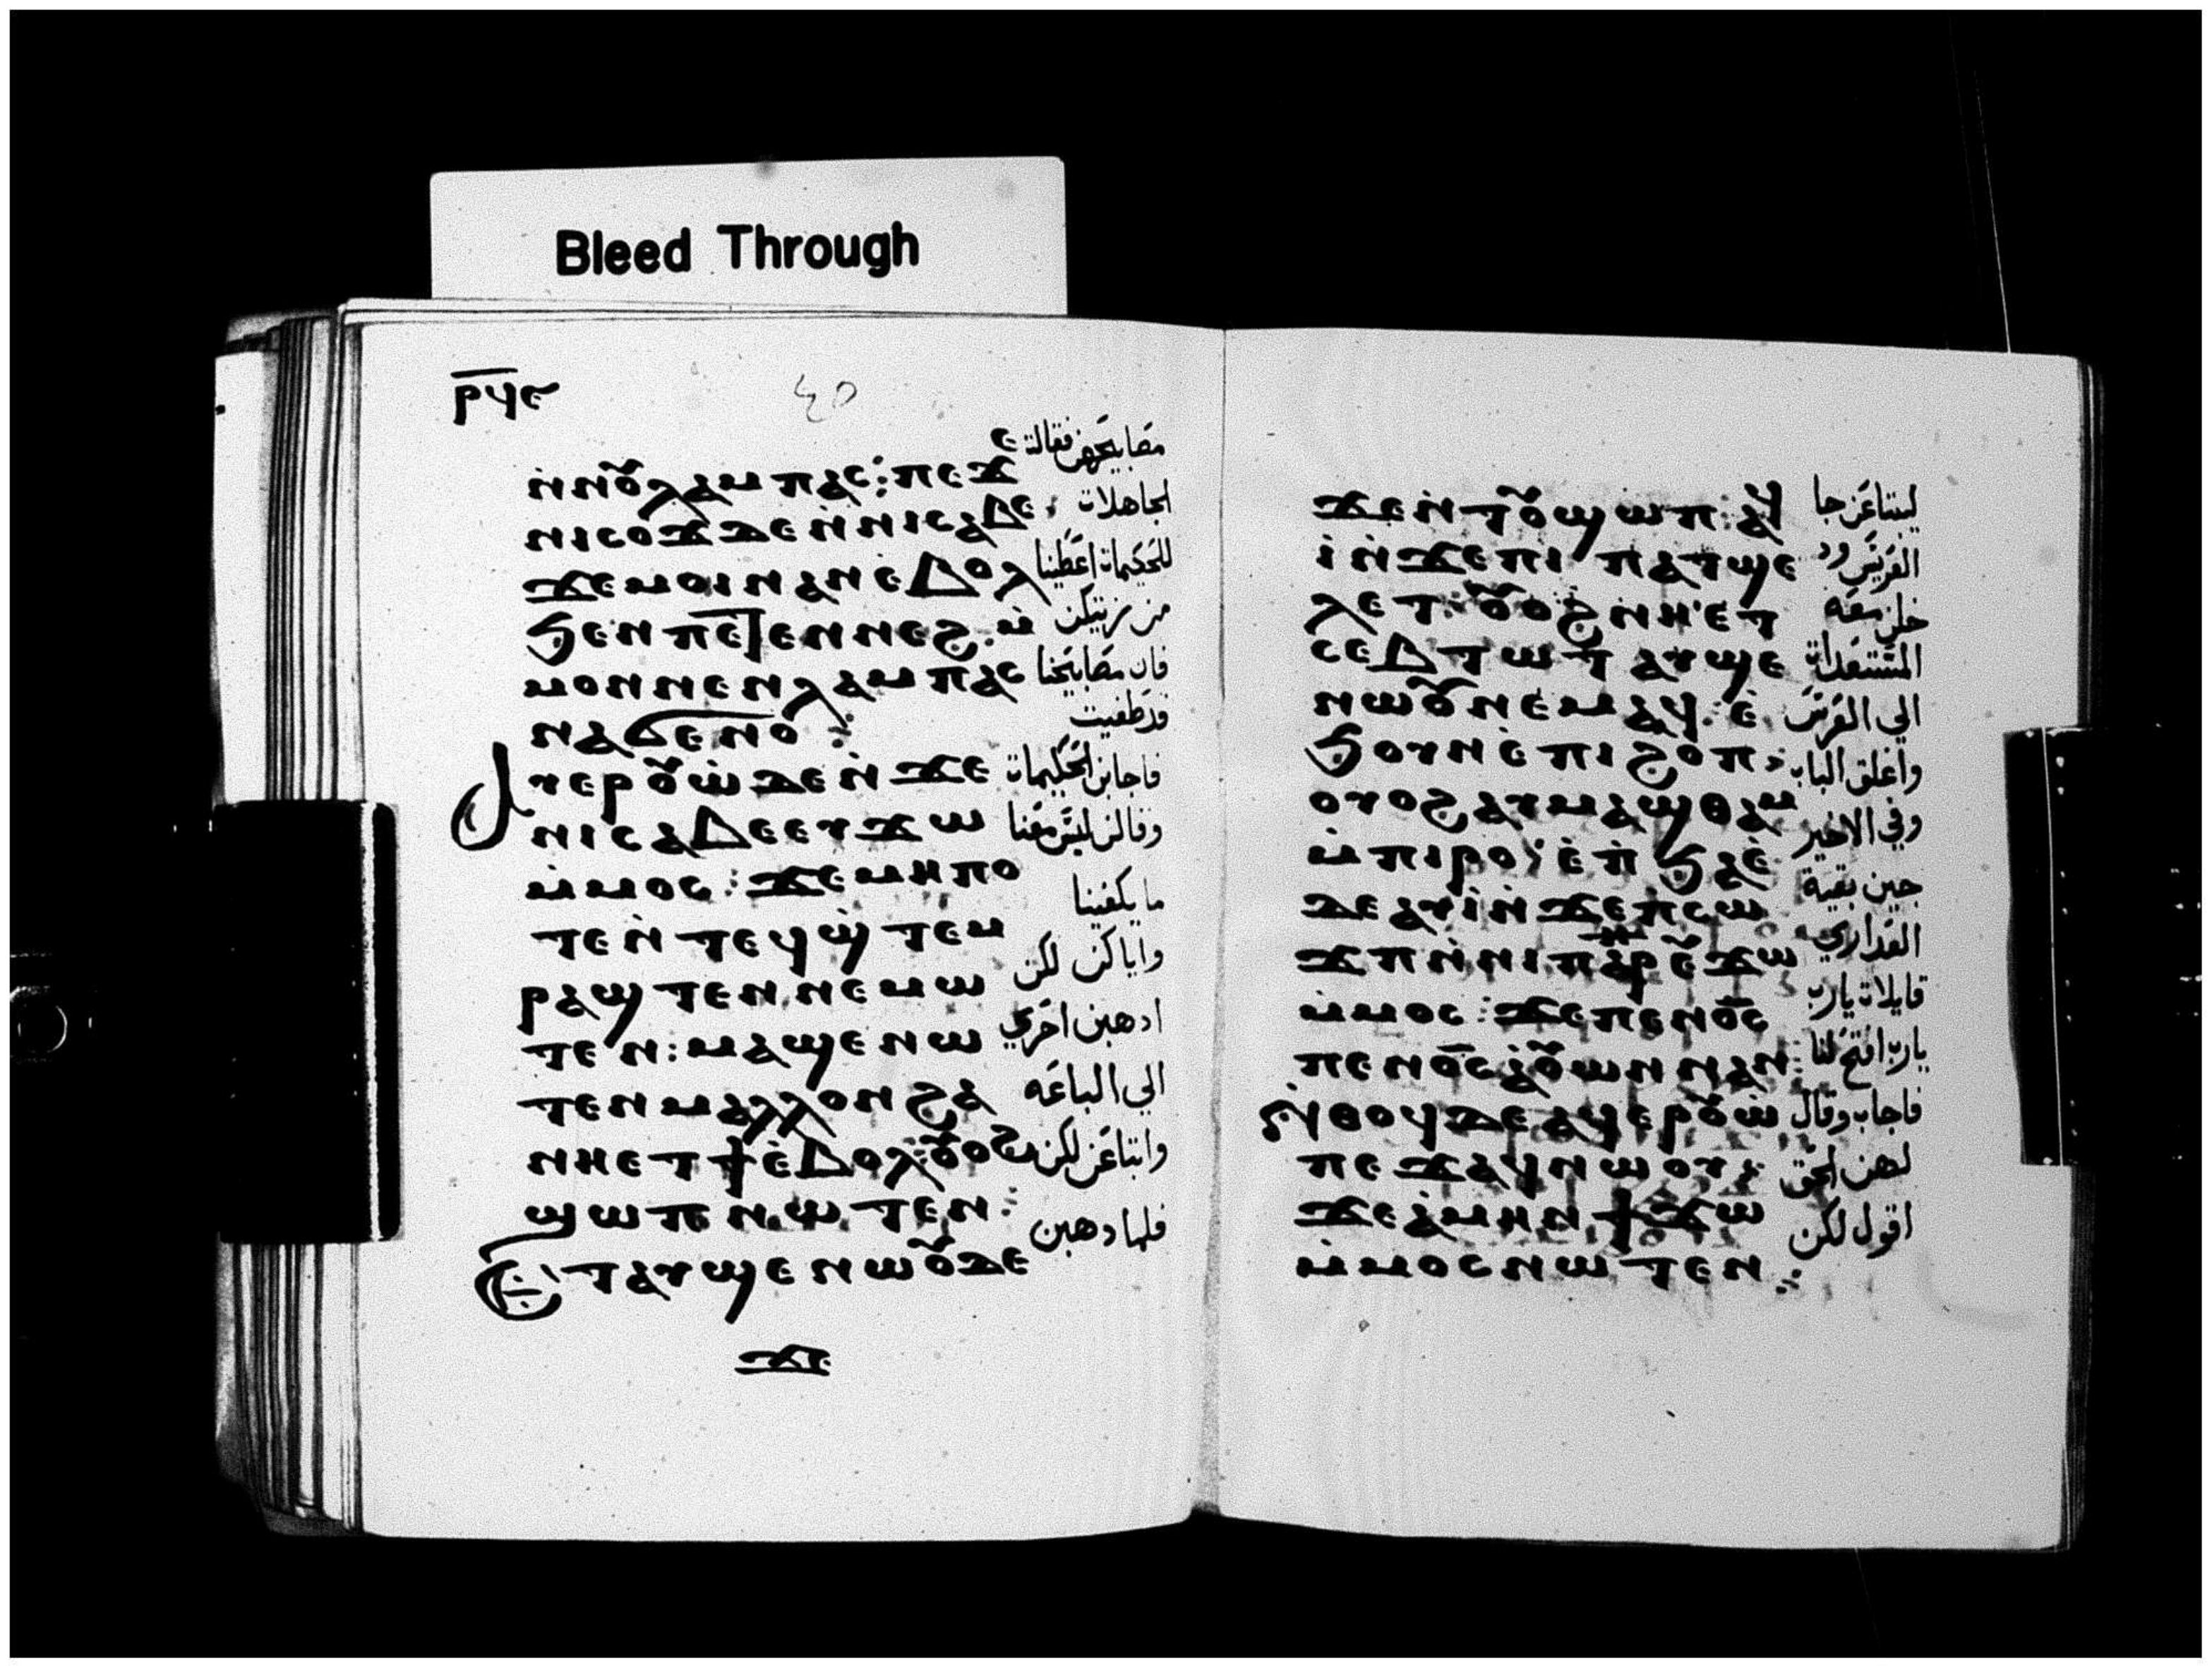 Bleed Through
ⲣϥⲉ
٤٥
ⲛ̇ⲛⲟⲩⲗⲁⲙⲡⲁⲥ: ⲡⲉϫⲉ
ⲛⲓⲥⲟϫ ⲇⲉ ⲛ̇ⲛⲓⲥⲁⲃⲉ
ϫⲉ ⲙⲟⲓ ⲛⲁⲛ ⲉ̇ⲃⲟⲗ
ϧⲉⲛ ⲡⲉⲧⲉⲛⲛⲉϩ. ⲙ̇
ⲙⲟⲛ ⲛⲉⲛⲗⲁⲙⲡⲁⲥ
ⲛⲁϭⲉⲛⲟ:
ⲁⲩⲉⲣⲟⲩⲱ̇ ⲇⲉ ⲛ̇ϫⲉ
ⲛⲓⲥⲁⲃⲉⲉⲩϫⲱ
ⲙ̇ⲙⲟⲥ: ϫⲉ ⲙⲏⲡⲟ
ⲧⲉ ⲛ̇ⲧⲉϥϣ̇ⲧⲉⲙ
ⲣⲁϣⲧⲉⲛ ⲛⲉⲙⲱ
ⲧⲉⲛ: ⲙⲁϣⲉⲛⲱ
ⲧⲉⲛ ⲙⲁⲗⲗⲟⲛ ϩⲁ
ⲛⲏⲉⲧϯ ⲉ̇ⲃⲟⲗ: ⲟⲩⲟϩ
ϣⲱⲡ ⲛⲱⲧⲉⲛ:
ⲉⲧⲁⲩϣⲉⲛⲱⲟⲩ ⲇⲉ
ϫⲉ
مصابيحهن فقالت
الجاهلات
للحكيمات اعطينا
من زيتكن
فان مصابيحنا
قد طفيت
فاجابن الحكيمات
وقالن ليس معنا
ما يكفينا
واياكن لكن
ادهبن احري
الي الباعه
وابتاعن لكن
فلما دهبن
ϫⲉ ⲛ̇ⲧⲟⲩϣⲱⲡ: ⲁϥ
ⲓ̇ ⲛ̇ϫⲉ ⲡⲓⲡⲁⲧϣⲉ
ⲗⲉⲧ: ⲟⲩⲟϩ ⲛⲏⲉⲧ
ⲥⲉⲃⲧⲱⲧ ⲁⲩϣⲉ
ⲛⲱⲟⲩ ⲛⲉⲙⲁϥ: ⲉ̇
ϧⲟⲩⲛ ⲉ̇ⲡⲓϩⲟⲡ:
ⲟⲩⲟϩ ⲁⲩⲙⲁϣⲑⲁⲙ
ⲙ̇ⲡⲓⲣⲟ: ⲉ̇ⲡ̇ϧⲁⲉ̇
ⲇⲉ ⲁⲩⲓ̇ ⲛ̇ϫⲉ ⲡⲥⲱ
ϫⲡ ⲛ̇ⲛⲓⲡⲁⲣ ⲉⲩϫⲱ
ⲙ̇ⲙⲟⲥ: ϫⲉ ⲡⲉⲛⲟ̅ⲥ̅
ⲡⲉⲛⲟ̅ⲥ̅ ⲁ̇ⲟⲩⲱⲛ ⲛⲁⲛ:
ⲛ̇ⲑⲟϥ ⲇⲉ ⲁϥⲉⲣⲟⲩⲱ̇
ⲡⲉϫⲁϥ ⲛⲱⲟⲩ:
ϫⲉ ⲁ̇ⲙⲏⲛ ϯϫⲱ
ⲙ̇ⲙⲟⲥ ⲛⲱⲧⲉⲛ:
ليبتاعن جا
العريس ود
خلن معه
المستعدات
الي العرس
واغلق الباب
وفي الاخير
جين بقية
العداري
قايلات يارب
يارب افتح لنا
فاجاب وقال
لهن الحق
اقول لكن